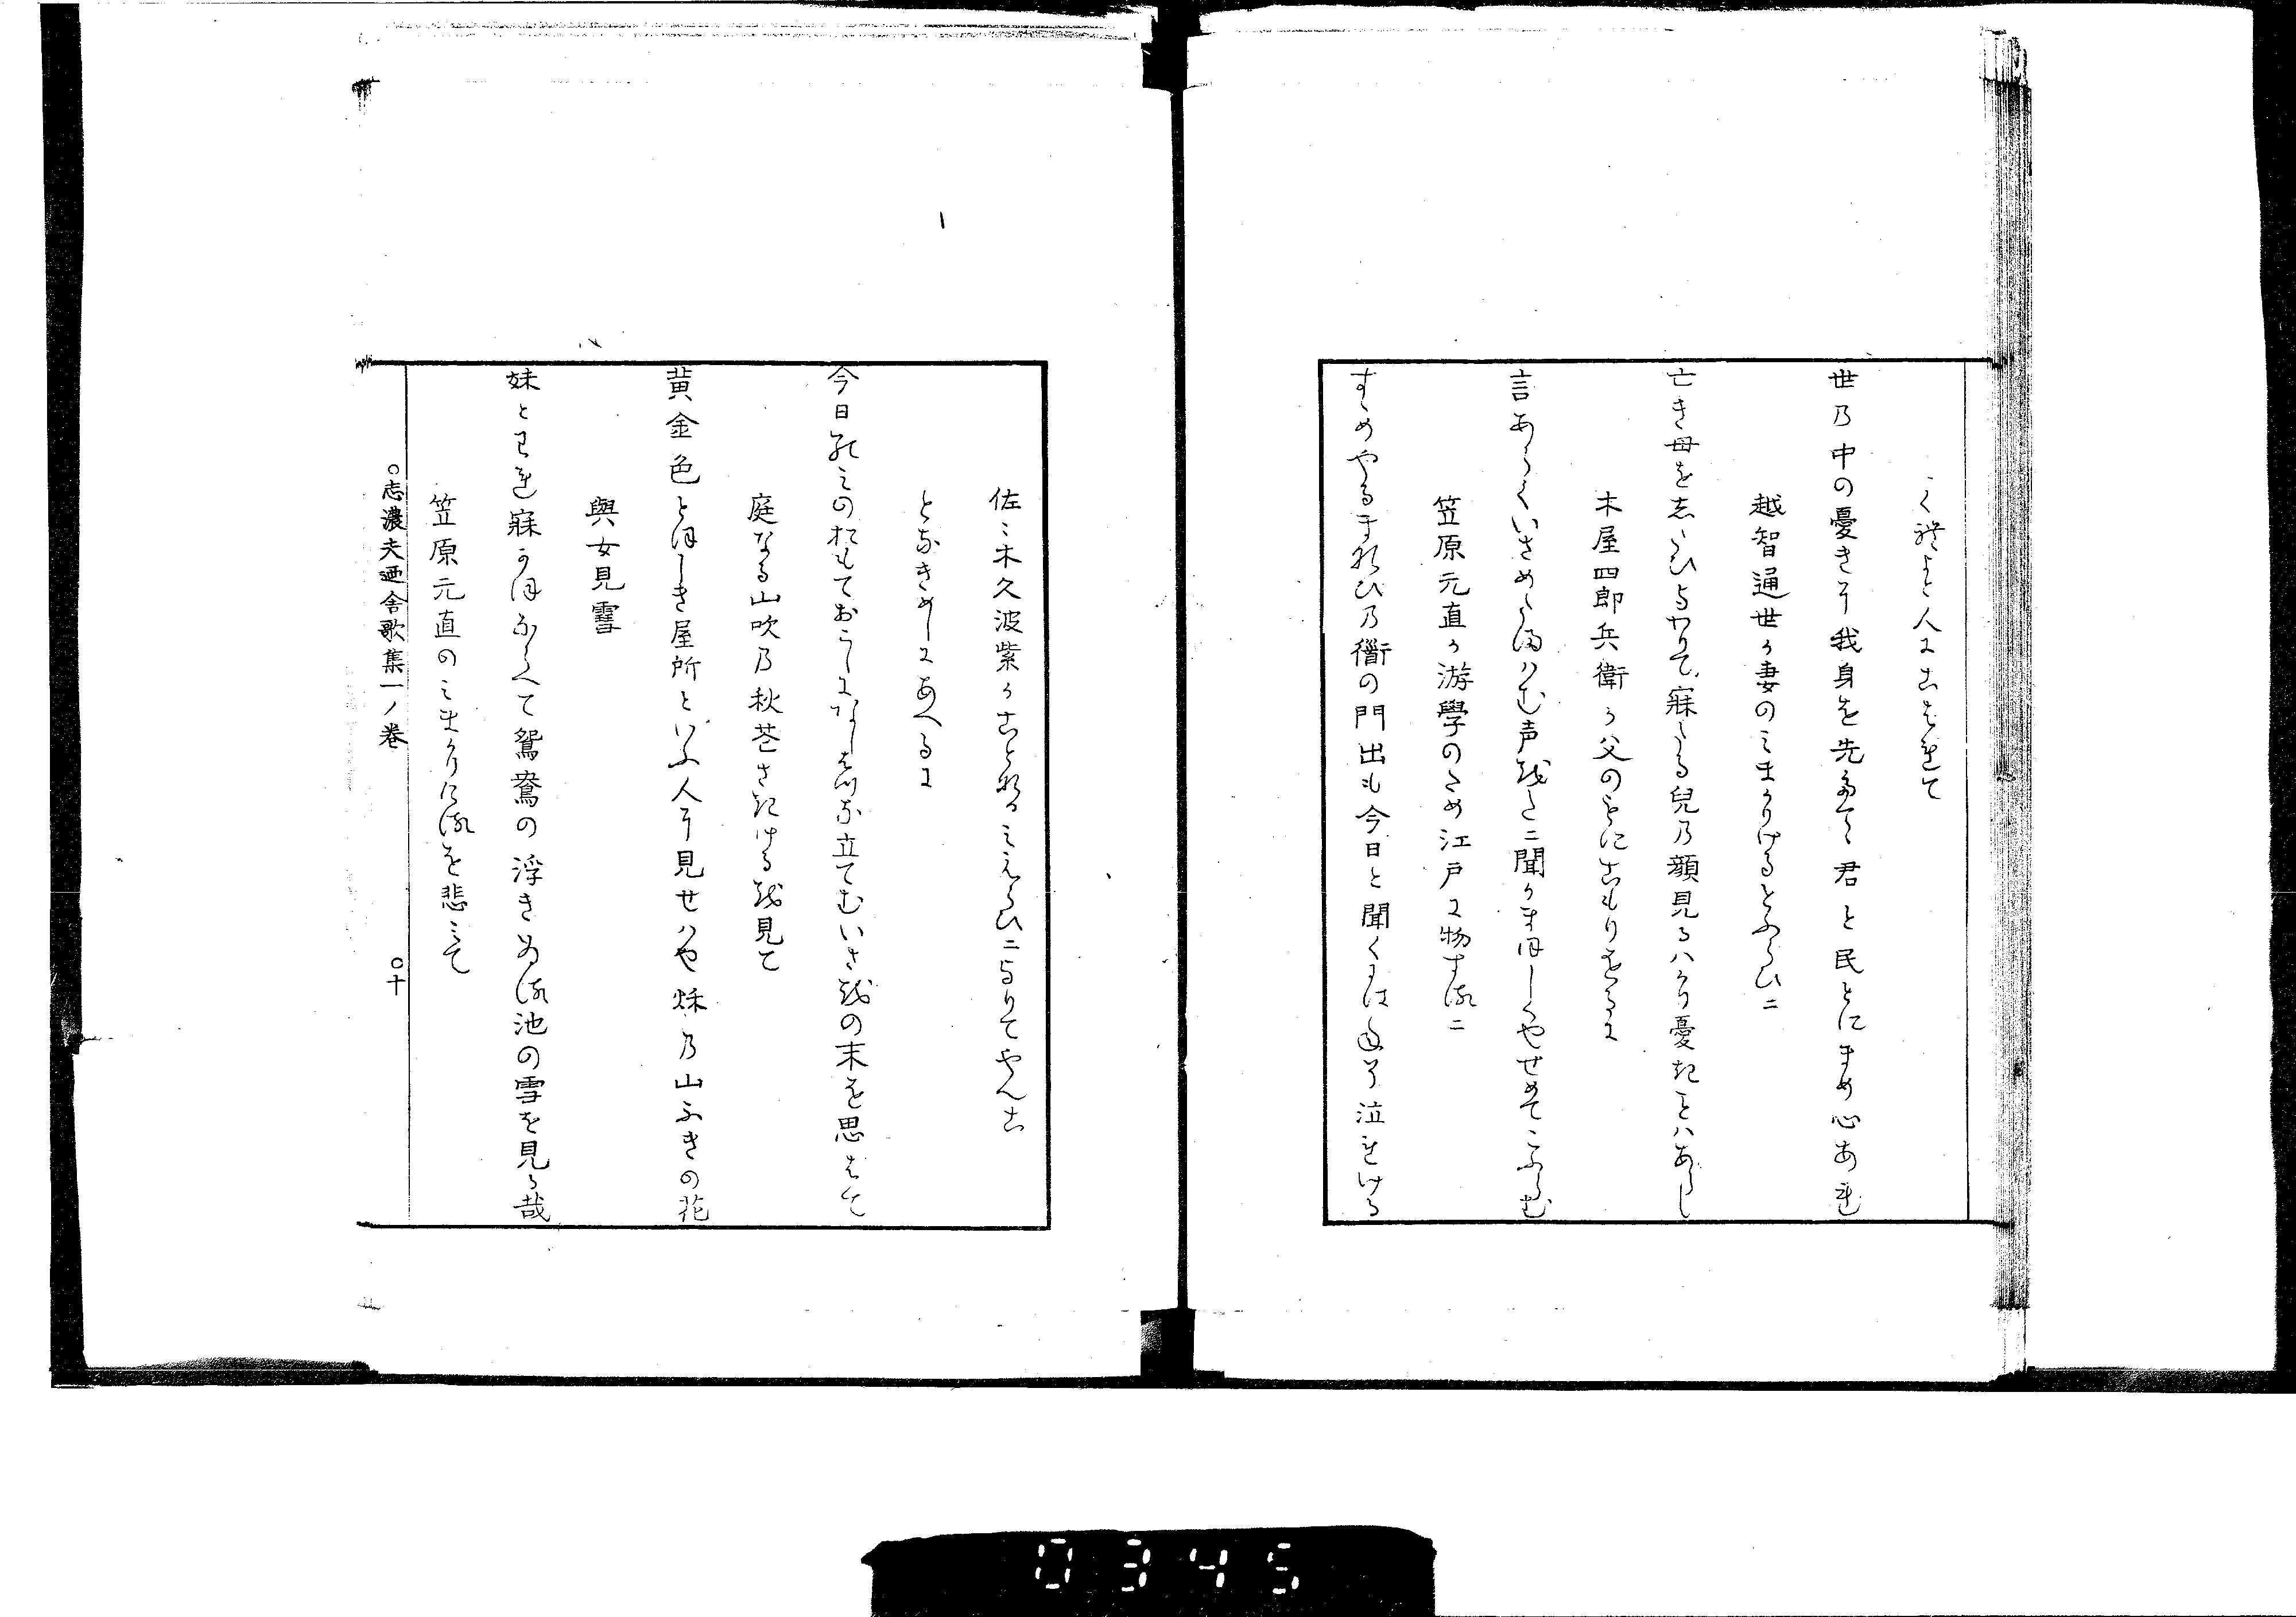 く禮よと人にこはれて
世乃中の憂きを我身を先たてゝ君と民とにまめ心あれ
越智通世か妻のみまかりけるとふらひに
亡き母をしたひよわりて寐たる兒乃顔見るはかり憂きことはあらし
木屋四郎兵衛か父のもにこもりをるに
言あらくいさめたまはむ声をたに聞かまほしくやせめてこふらむ
笠原元直か游學のため江戸に物するに
すゝめやるまなひ乃衢の門出も今日と聞くには泣れける
佐々木久波紫かことなるみえらひによりてやんこ
となきめしにあへるに
今日のみのおもておこしになしはつな立てむいさをの末を思はて
庭なる山吹乃秋花さきけるを見て
黄金色とほしき屋所といふ人に見せはや秌乃山ふきの花
與女見雪
妹とわれ寐かほならへて鴛鴦の浮きゐる池の雪を見る哉
笠原元直のみまかりけるを悲みて
○志濃夫廼舎歌集一ノ巻 ○十
0345